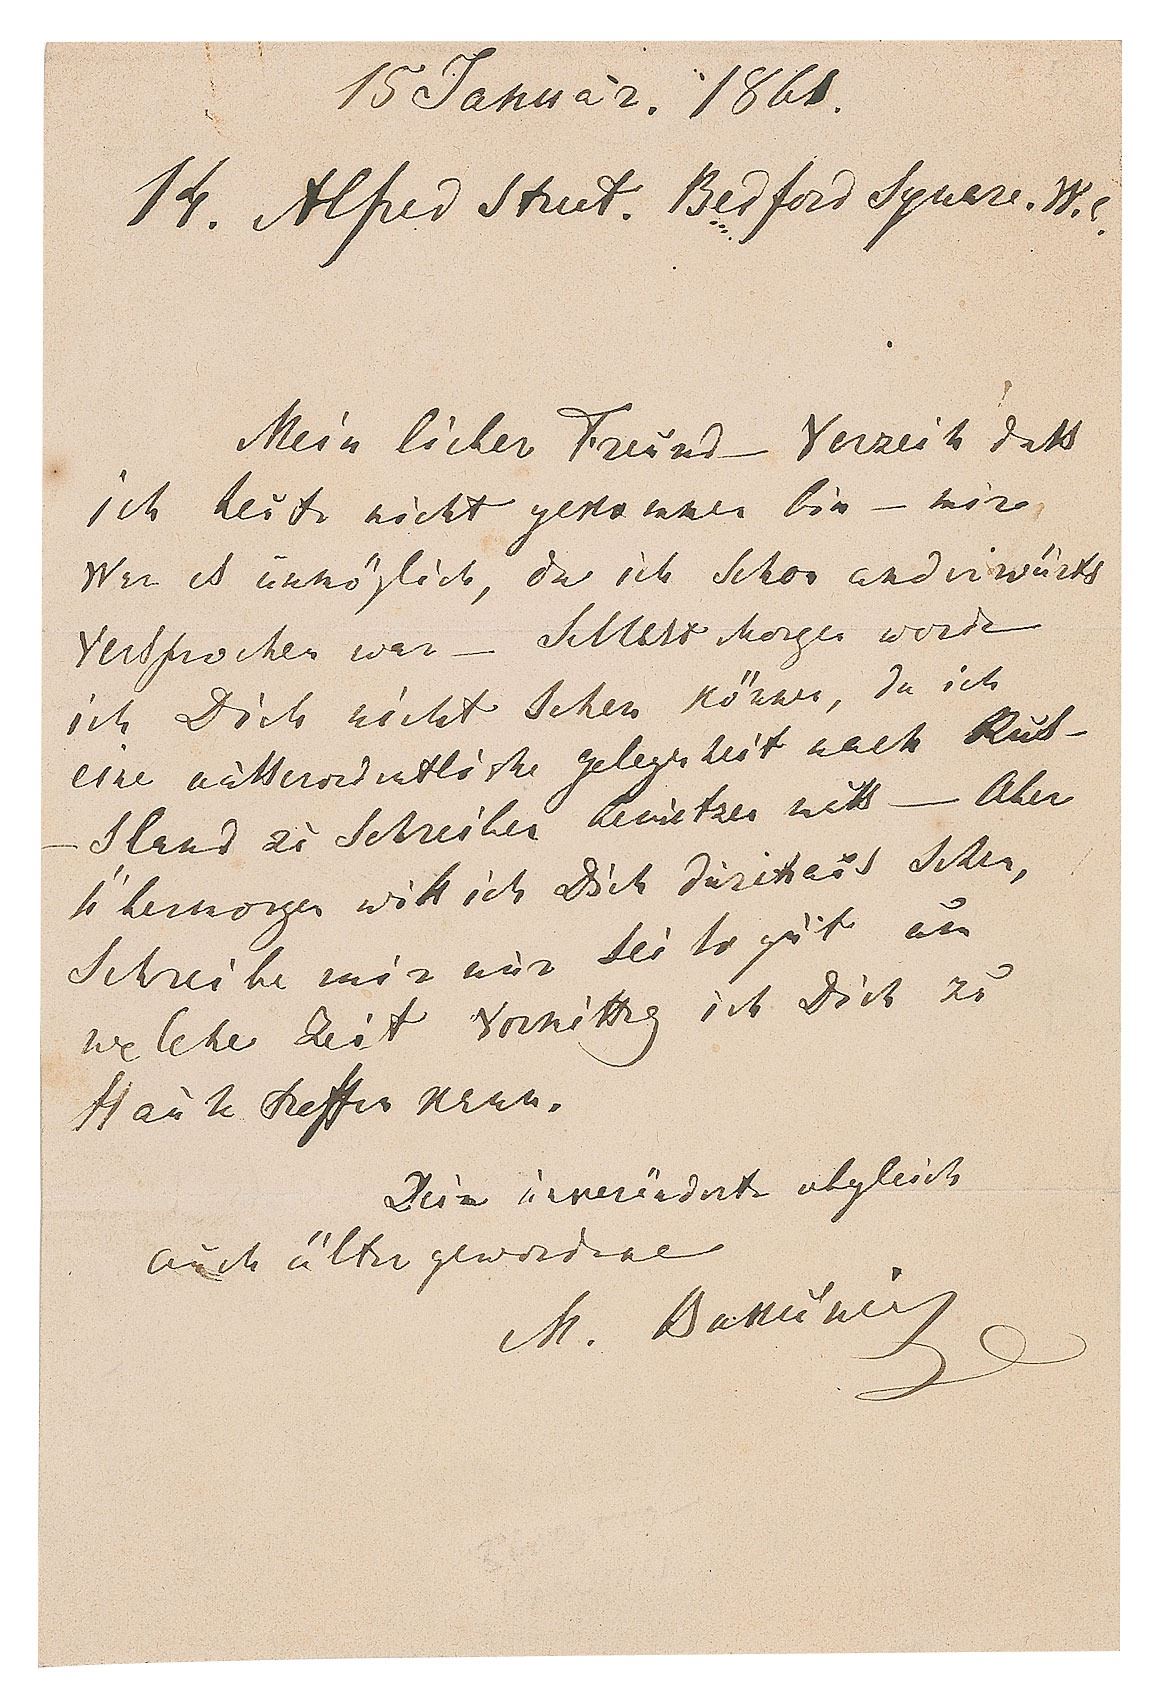 15 Januar. 1861.
14. Alfred Street. Bedford Square. W.C.
Mein lieber Freund — Verzeih dass
ich heute nicht gekommen bin — mir
war es unmöglich, da ich schon anderwärts
versprochen war — Selbst Morgen werde
ich Dich nicht sehen können, da ich
eine ausserordentliche gelegenheit nach Rus-
-sland zu schreiben benutzen muss — Aber
übermorgen will ich Dich durchaus sehen,
Schreibe mir nur sei so gut um
welche Zeit Vormittag ich Dich zu
Hause treffen kann.
Dein unveränderte obgleich
auch älter gewordene
M. Bakunin